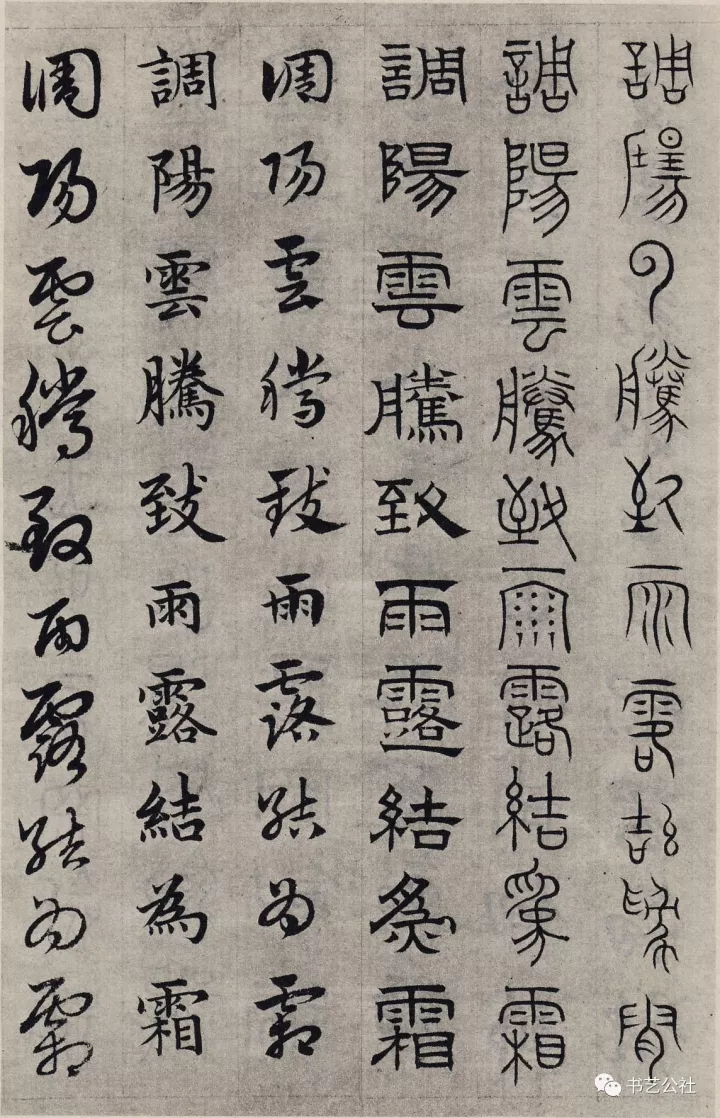 調陽雲騰致雨露結為霜
調陽雲騰致雨露結為霜
調陽雲騰致雨露結為霜
調陽雲騰致雨露結為霜
調陽雲騰致雨露結為霜
調陽雲騰致雨露結為霜
书艺公社